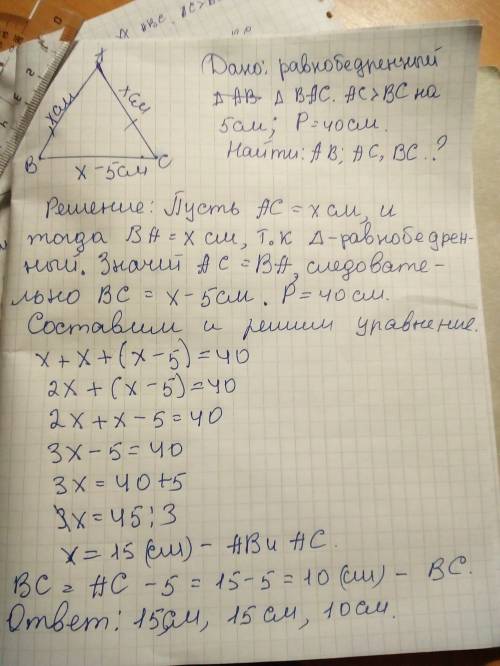 A
x см
x см
B
C
x - 5см
Дано: равнобедренный
Δ BAC. AC>BC на
5см; P=40см.
Найти: AB; AC, BC.?
Решение: Пусть AC = x см, и
тогда BA = x см, т.к Δ-равнобедрен-
ный. Значит AC = BA, следовате-
льно BC = x - 5см. P=40см.
Составим и решим уравнение.
x + x + (x - 5) = 40
2x + (x - 5) = 40
2x + x - 5 = 40
3x - 5 = 40
3x = 40 + 5
3x = 45 : 3
x = 15 (см) - AB и AC.
BC = AC - 5 = 15 - 5 = 10 (см) - BC.
Ответ: 15см, 15 см, 10см.